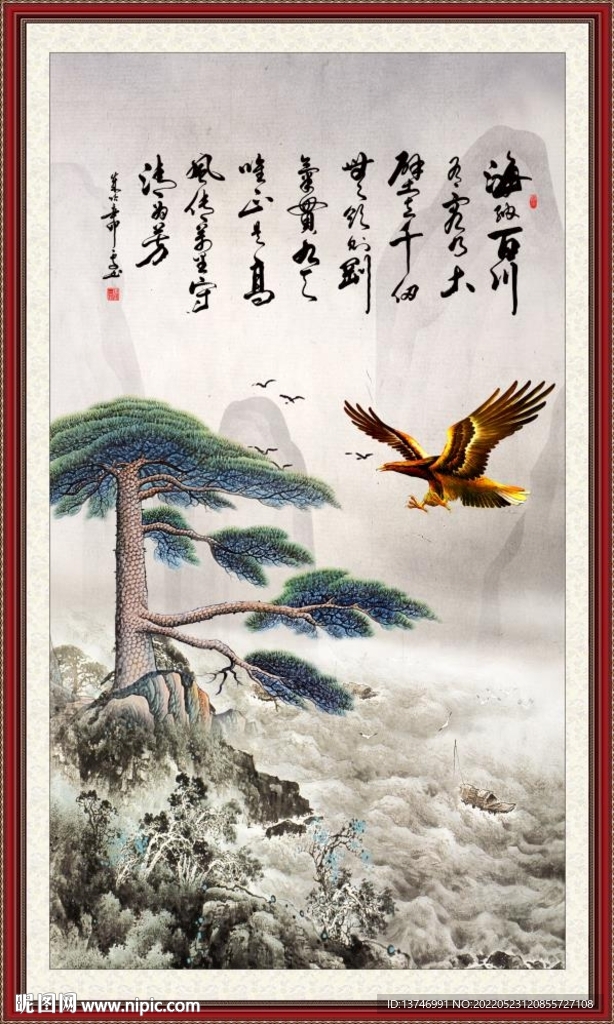 海納百川
有容乃大
壁立千仞
無欲則剛
氣貫九天
唯正是高
風传萬守
清为芳
昵图网 www.nipic.com
ID:13746991 NO:20220523120855727108